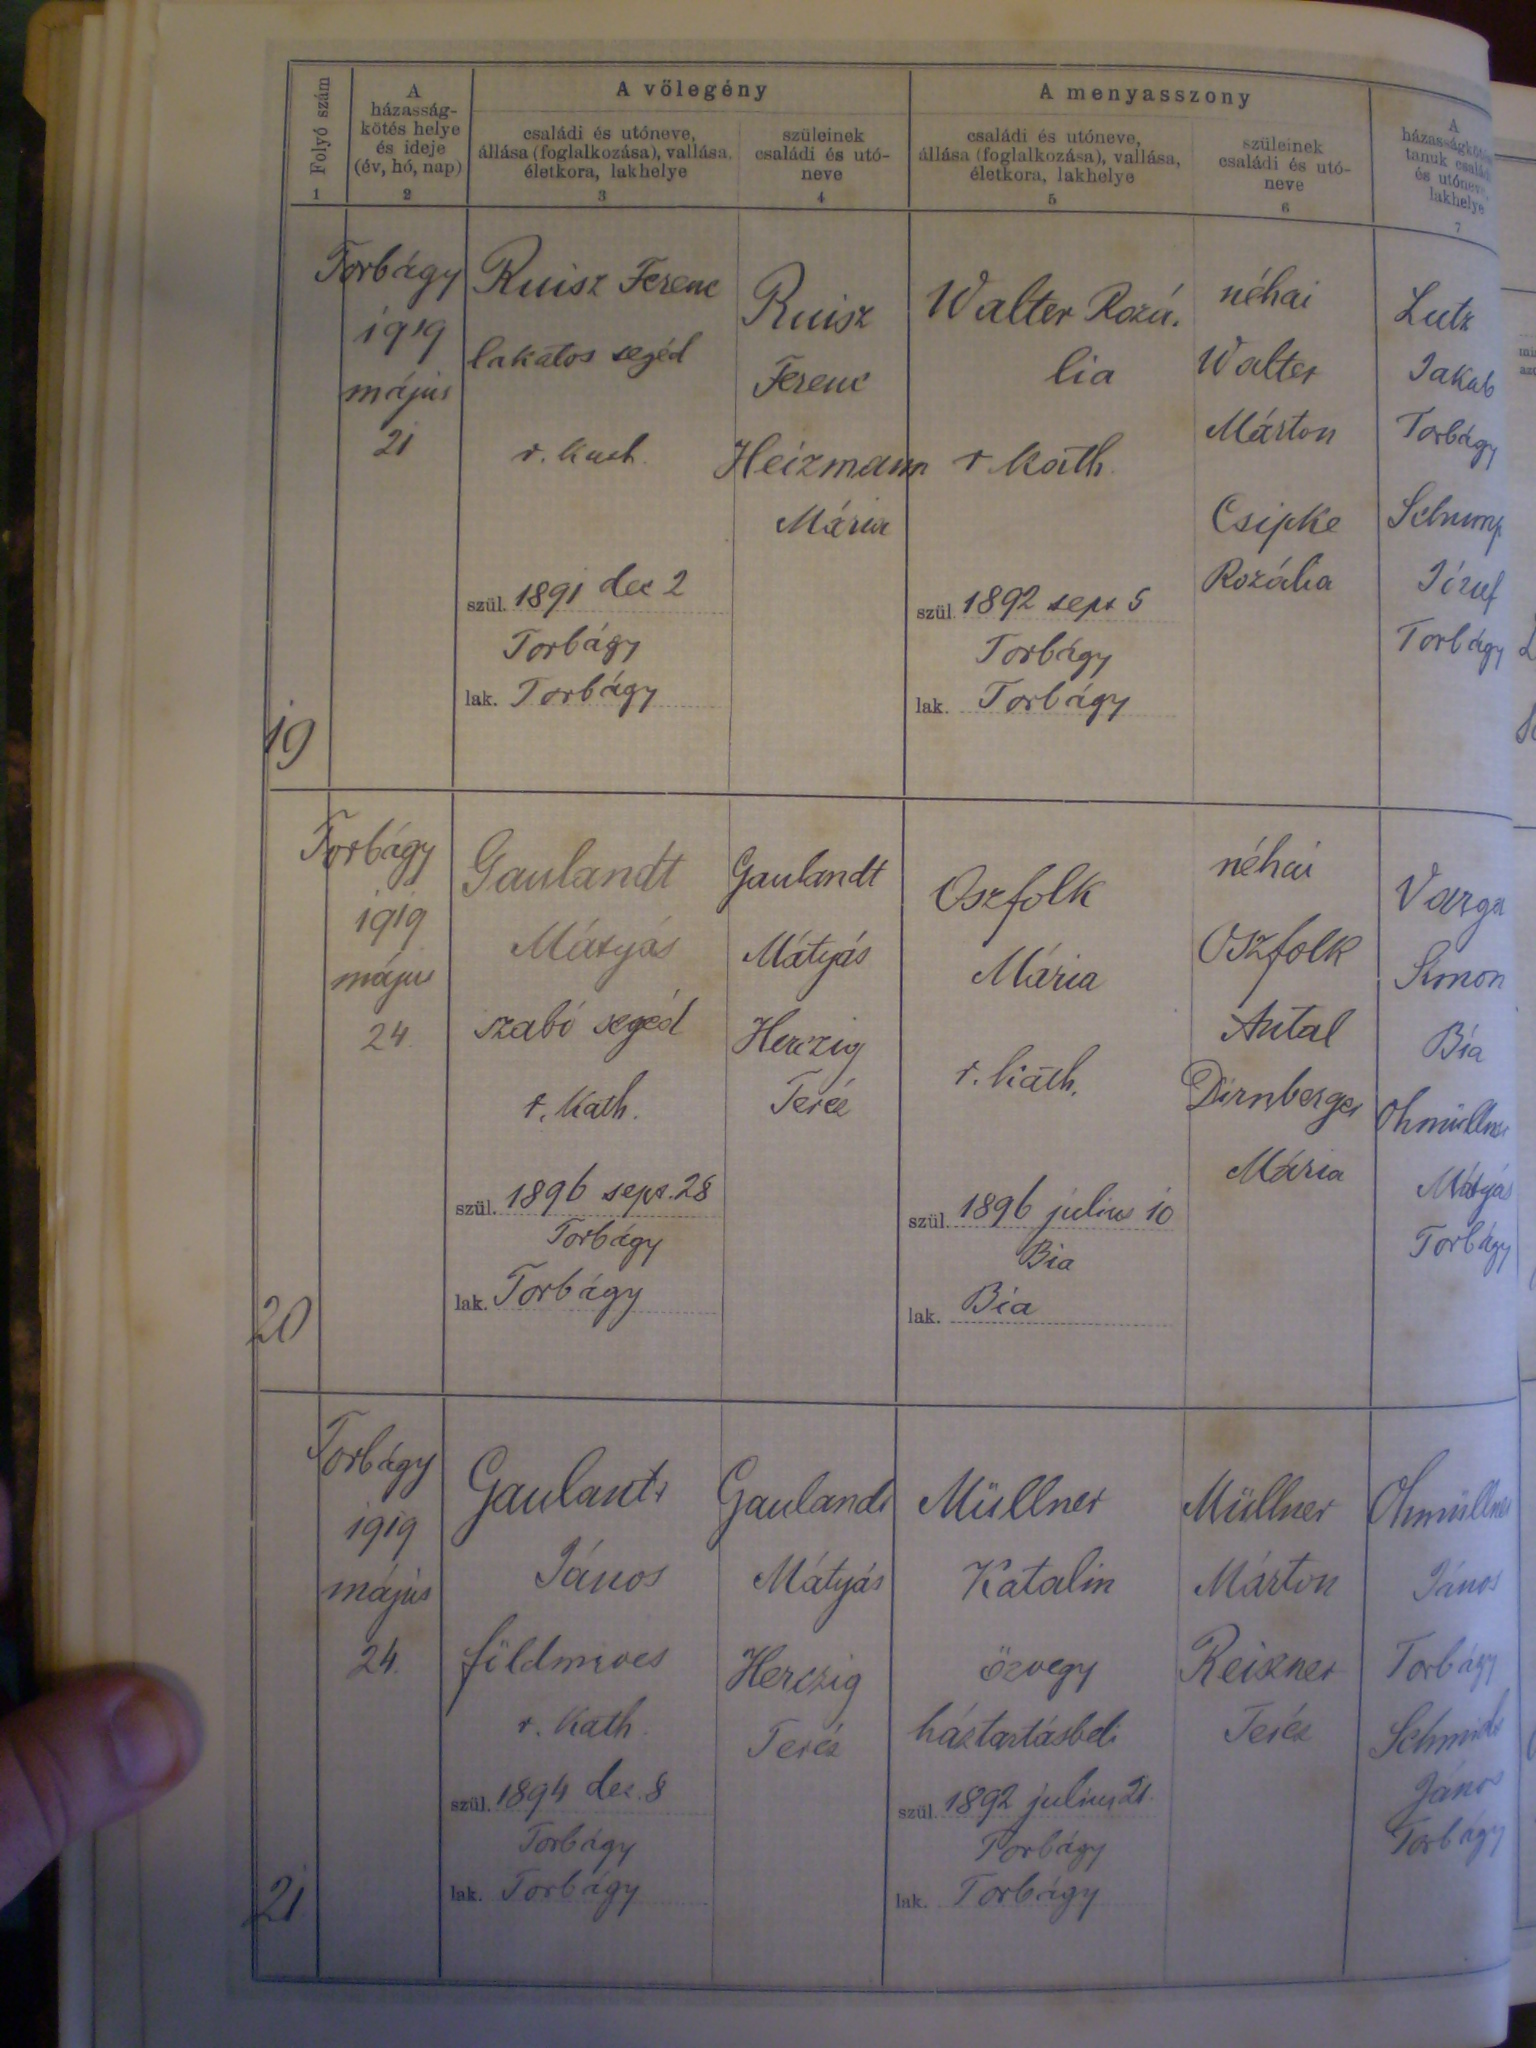 Folyó szám
1
A
házasság-
kötés helye
és ideje
(év, hó, nap)
2
A vőlegény
családi és utóneve,
állása (foglalkozása), vallása,
életkora, lakhelye
3
szüleinek
családi és utó-
neve
4
A menyasszony
családi és utóneve,
állása (foglalkozása), vallása,
életkora, lakhelye
5
szüleinek
családi és utó-
neve
6
A
házasságkötési
tanuk családi
és utóneve,
lakhelye
7
19
Torbágy
1919
május
21
Ruisz Ferenc
lakatos segéd
r. kath.
szül. 1891 dec 2
Torbágy
lak. Torbágy
Ruisz
Ferenc
Heizmann
Mária
Walter Rozá-
lia
r kath.
szül. 1892 sept 5
Torbágy
lak. Torbágy
néhai
Walter
Márton
Csipke
Rozália
Lutz
Jakab
Torbágy
Schump
József
Torbágy
20
Torbágy
1919
május
24.
Gaulandt
Mátyás
szabó segéd
r. kath.
szül. 1896 sept. 28
Torbágy
lak. Torbágy
Gaulandt
Mátyás
Herczig
Teréz
Oszfolk
Mária
r. kath.
szül. 1896 julius 10
Bia
lak. Bia
néhai
Oszfolk
Antal
Dirnberger
Mária
Varga
Simon
Bia
Ohmüllner
Mátyás
Torbágy
21
Torbágy
1919
május
24.
Gaulandt
János
földmives
r. kath.
szül. 1894 dec. 8
Torbágy
lak. Torbágy
Gaulandt
Mátyás
Herczig
Teréz
Müllner
Katalin
özvegy
háztartásbeli
szül. 1892 julius 21.
Torbágy
lak. Torbágy
Müllner
Márton
Reiszner
Teréz
Ohmüllner
János
Torbágy
Schmidt
János
Torbágy